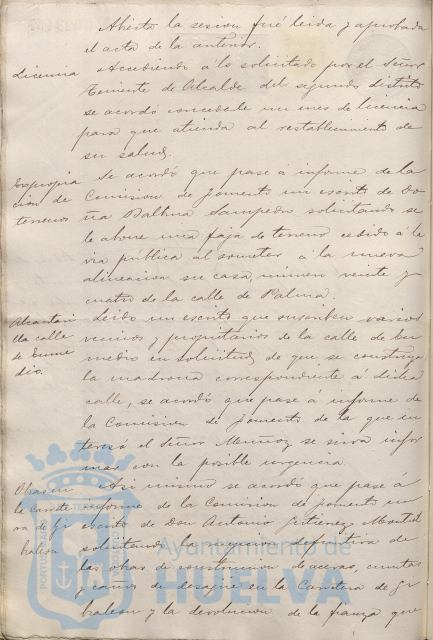 Abierta la sesion fué leida y aprobada
el acta de la anterior.
Licencia
Accediendo á lo solicitado por el Señor
Teniente de Alcalde del segundo distrito
se acordó concederle un mes de licencia
para que atienda al restablecimiento de
su salud.
Expropia
cion de
terrenos
Se acordó que pase á informe de la
Comision de Fomento un escrito de Do
ña Balbina Sampedro solicitando se
le abone una faja de terreno cedido á la
via pública al someter á la nueva
alineacion su casa número veinte y
cuatro de la calle de Palma.
Alcantari
lla calle
de Enme
dio.
Leido un escrito que suscriben varios
vecinos y propietarios de la calle de En
medio en solicitud de que se construya
la madrona correspondiente á dicha
calle, se acordó que pase á informe de
la Comision de Fomento de la que in
teresó el Señor Muñoz se sirva infor
mar con la posible urgencia.
Obras en
la Carrete
ra de Gi
braleon
Asi mismo se acordó que pase á
informe de la Comision de Fomento un
escrito de Don Antonio Gutierrez
solicitando la recepcion definitiva de
las obras de construccion de aceras, cunetas
y caños de desagüe en la Carretera de Gi
braleon y la devolucion de la fianza que
Ayuntamiento de
HUELVA